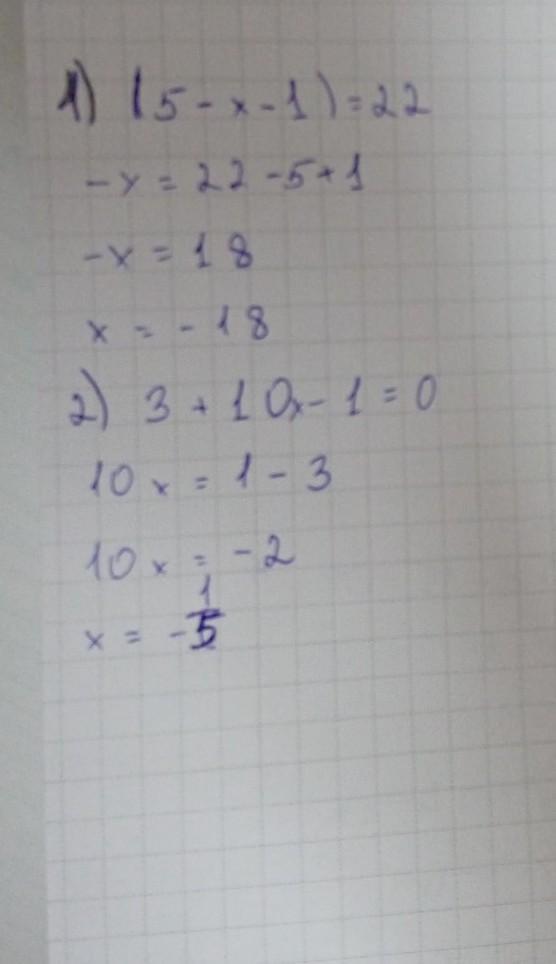 1) (5 - x - 1) = 22
-x = 22 - 5 + 1
-x = 18
x = -18
2) 3 + 10x - 1 = 0
10x = 1 - 3
10x = -2
x = -1/5